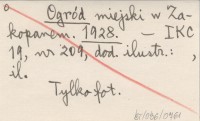 Ogród miejski w Za-
kopanem. 1928. — IKC
19, nr 209, dod. ilustr.: ,
il.
Tylko fot.